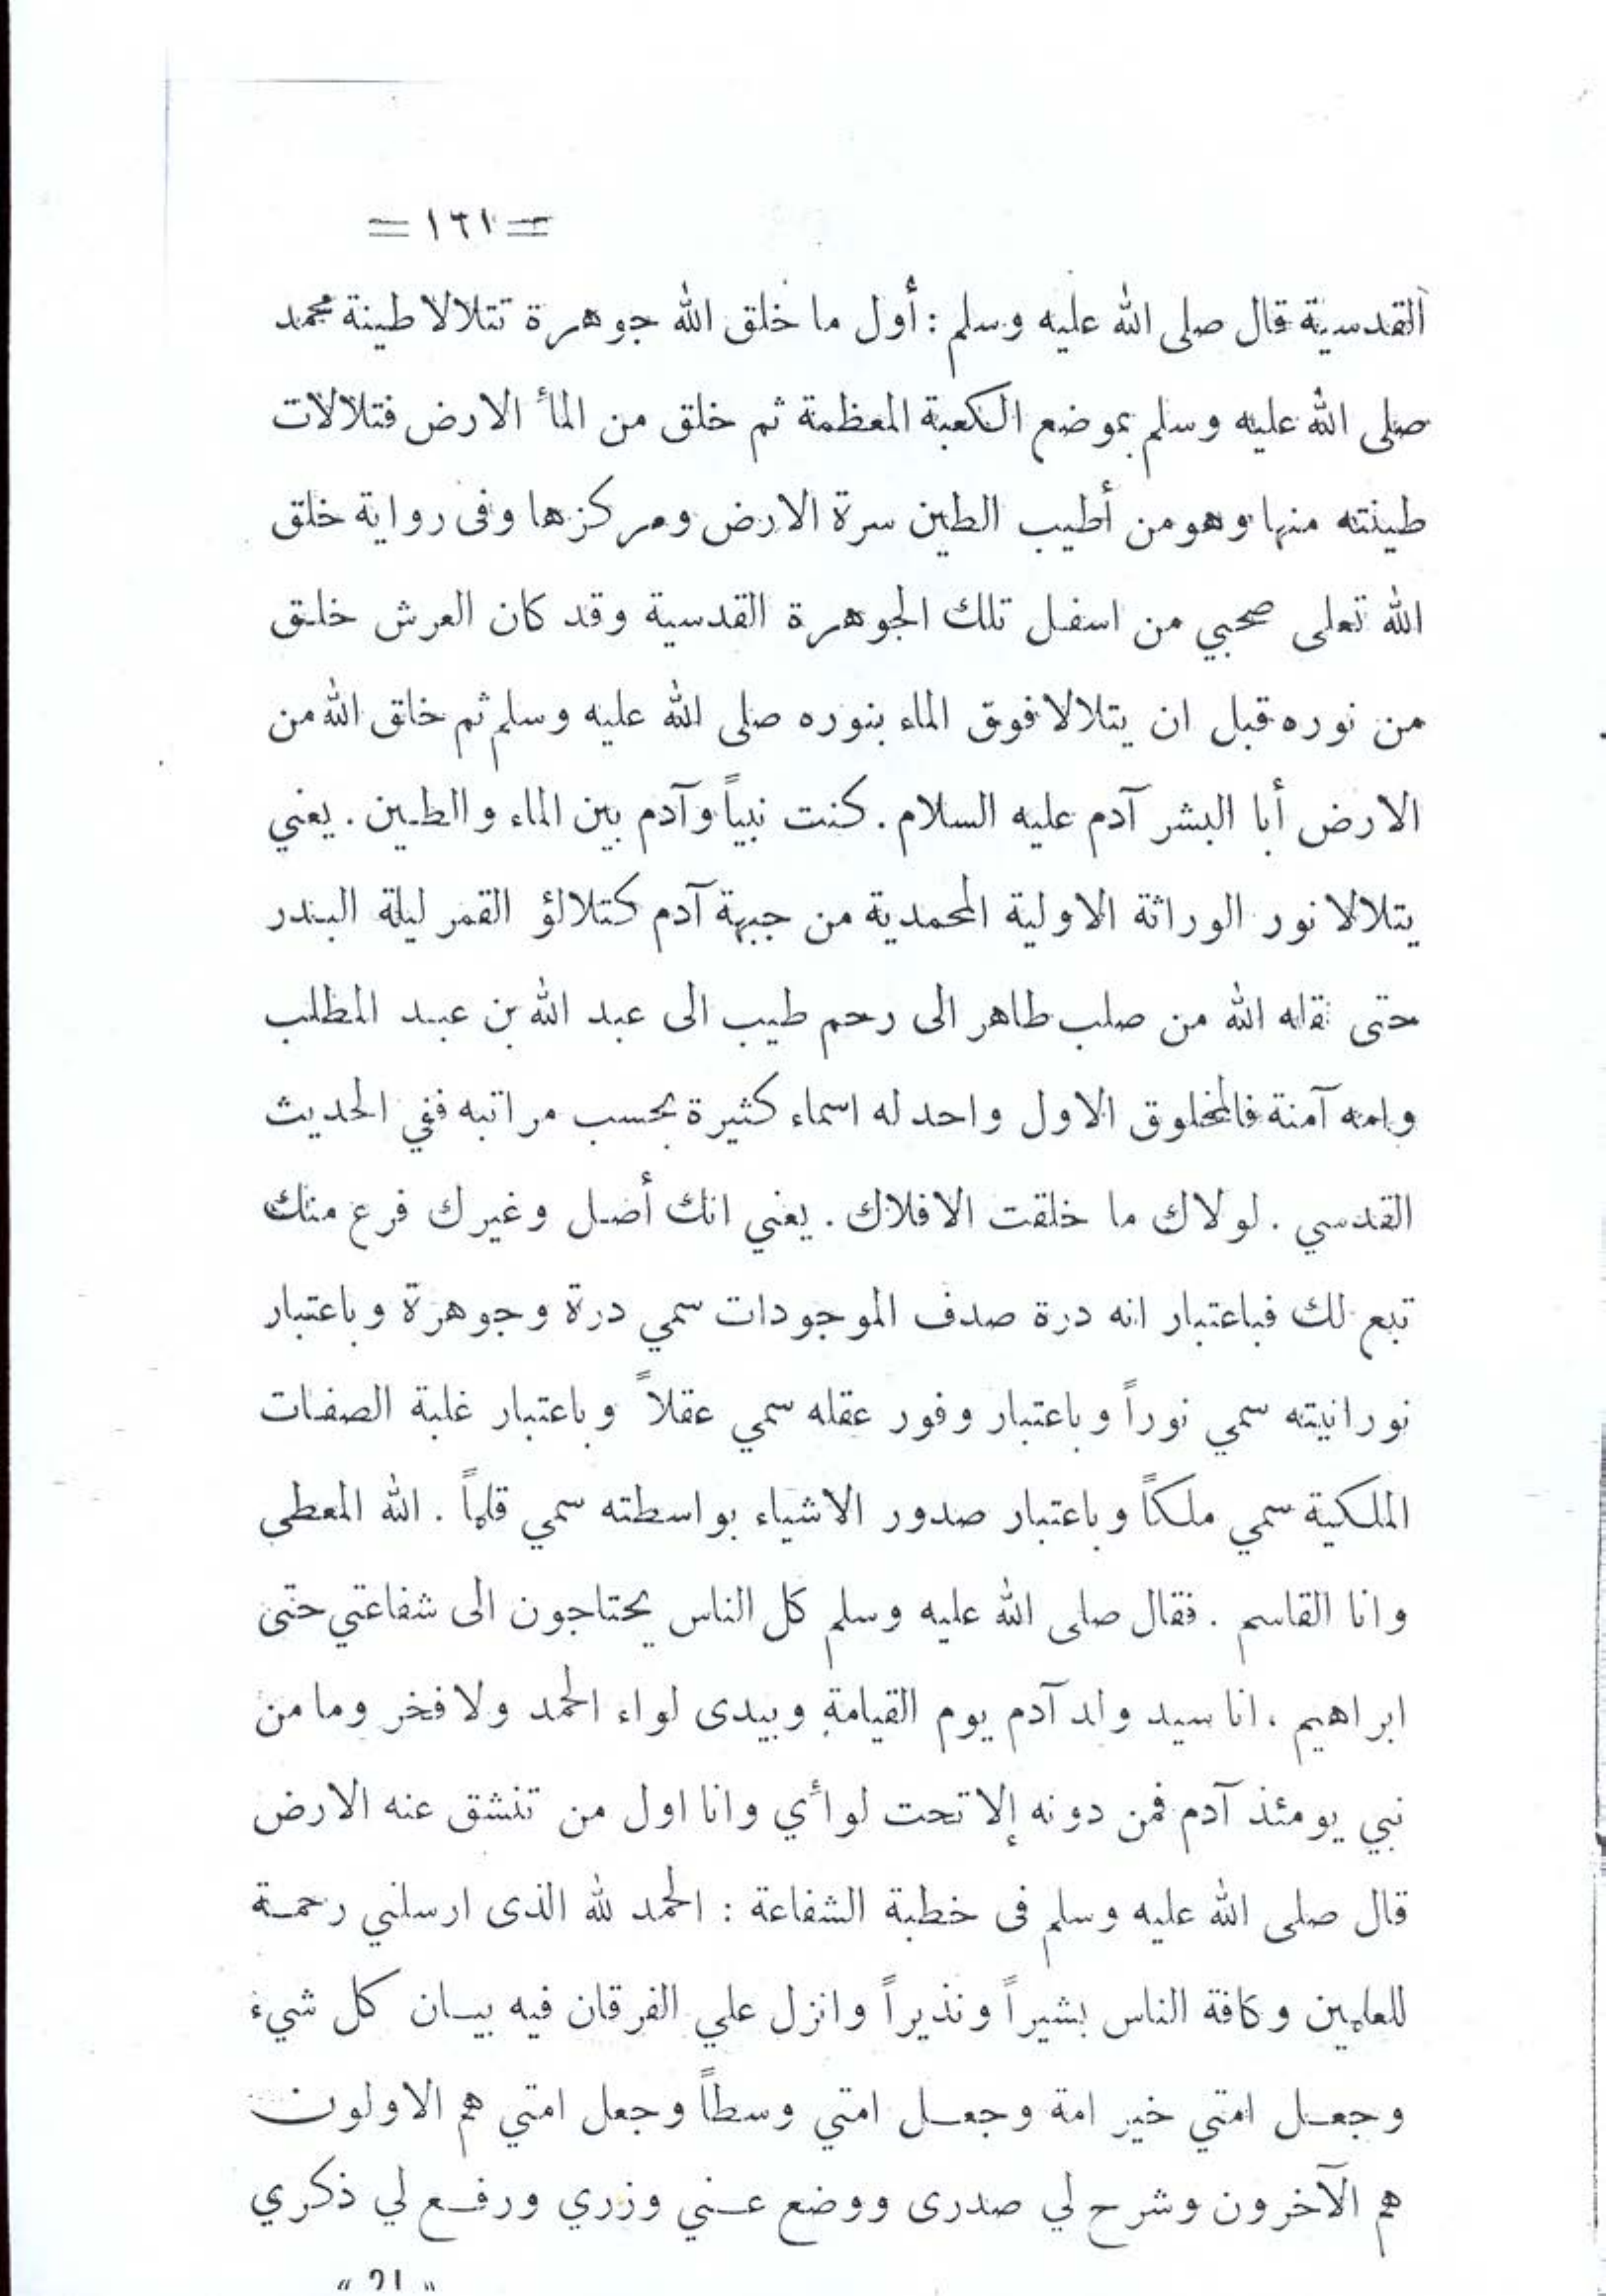 = ١٦١ =
القدسية قال صلى الله عليه وسلم : أول ما خلق الله جوهرة تتلالا طينة محمد
صلى الله عليه وسلم بموضع الكعبة المعظمة ثم خلق من المأ الارض فتلالات
طينته منها وهو من أطيب الطين سرة الارض ومركزها وفى رواية خلق
الله تعلى صحبي من اسفل تلك الجوهرة القدسية وقد كان العرش خلق
من نوره قبل ان يتلالا فوق الماء بنوره صلى الله عليه وسلم ثم خلق الله من
الارض أبا البشر آدم عليه السلام . كنت نبياً وآدم بين الماء والطين . يعني
يتلالا نور الوراثة الاولية المحمدية من جبهة آدم كتلالؤ القمر ليلة البدر
حتى نقله الله من صلب طاهر الى رحم طيب الى عبد الله بن عبد المطلب
وامه آمنة فالمخلوق الاول واحد له اسماء كثيرة بحسب مراتبه ففي الحديث
القدسي . لولاك ما خلقت الافلاك . يعني انك أصل وغيرك فرع منك
تبع لك فباعتبار انه درة صدف الموجودات سمي درة وجوهرة وباعتبار
نورانيته سمي نوراً وباعتبار وفور عقله سمي عقلاً وباعتبار غلبة الصفات
الملكية سمي ملكاً وباعتبار صدور الاشياء بواسطته سمي قلماً . الله المعطي
وانا القاسم . فقال صلى الله عليه وسلم كل الناس يحتاجون الى شفاعتي حتى
ابراهيم ، انا سيد ولد آدم يوم القيامة وبيدى لواء الحمد ولا فخر وما من
نبي يومئذ آدم فمن دونه إلا تحت لوأي وانا اول من تنشق عنه الارض
قال صلى الله عليه وسلم فى خطبة الشفاعة : الحمد لله الذى ارسلني رحمة
للعلمين وكافة الناس بشيراً ونذيراً وانزل علي الفرقان فيه بيان كل شيء
وجعل امتي خير امة وجعل امتي وسطاً وجعل امتي هم الاولون
هم الآخرون وشرح لي صدرى ووضع عني وزري ورفع لي ذكري
« ٢١ »